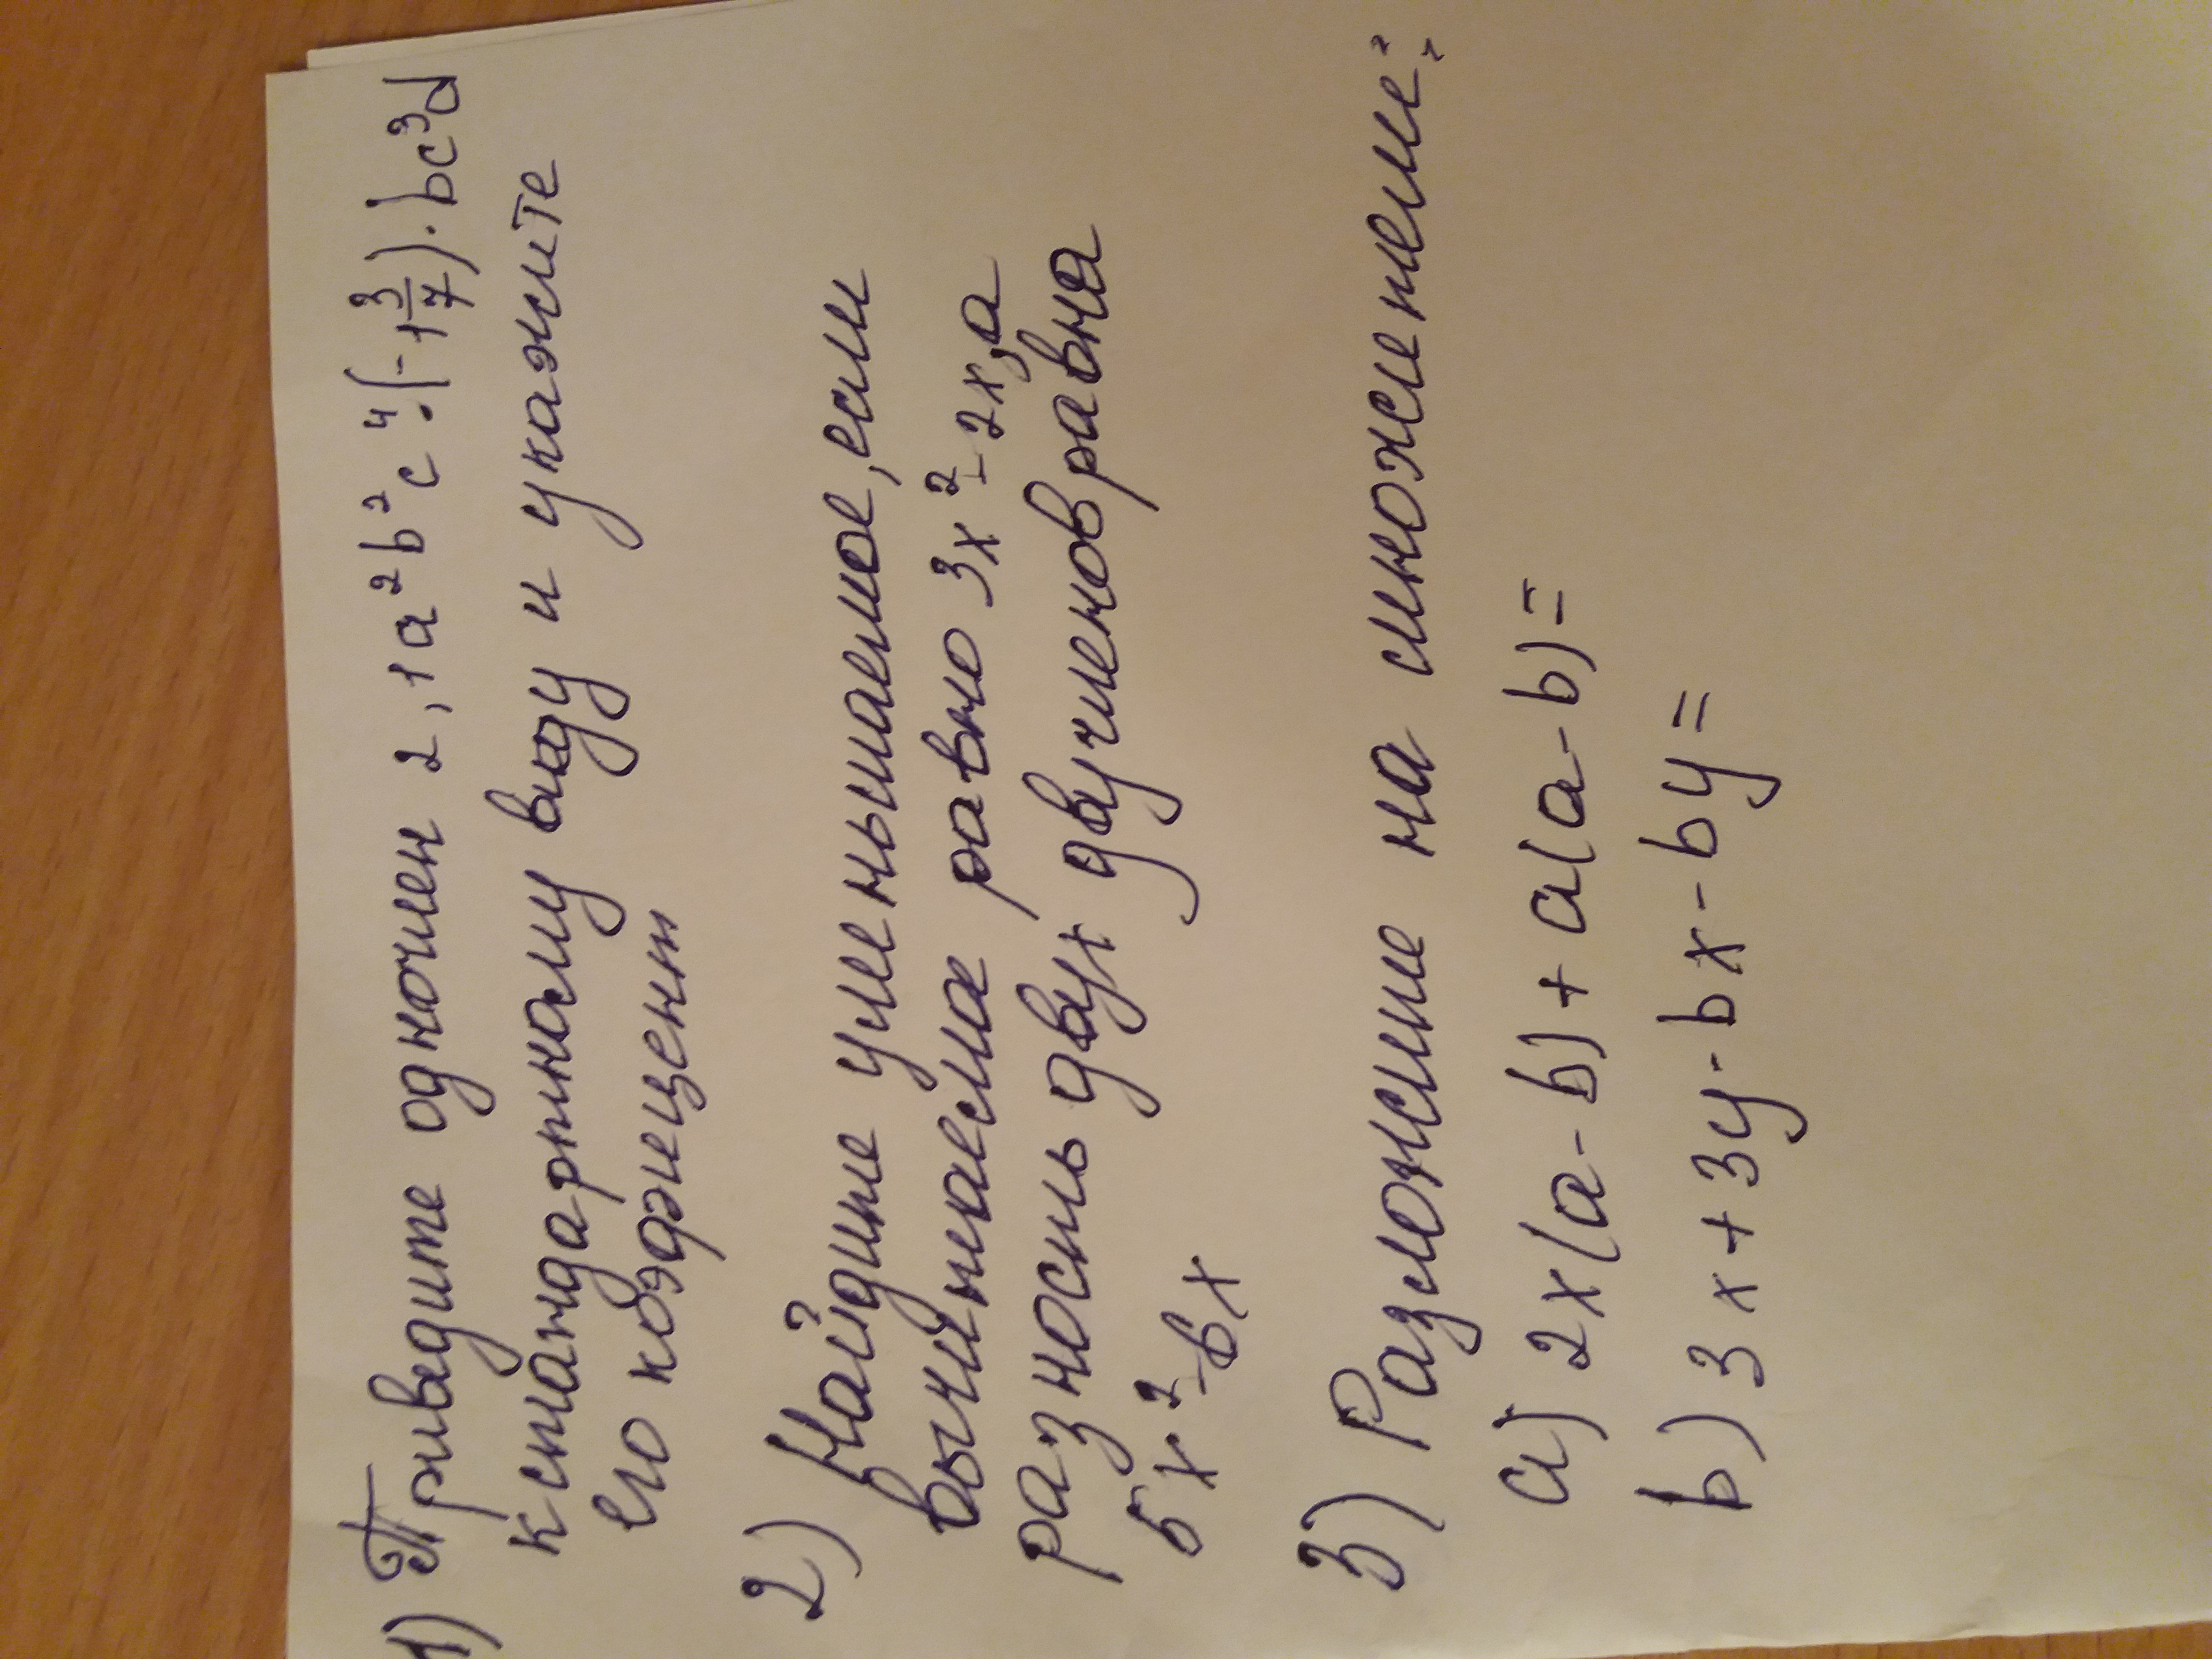 1) Приведите одночлен 2,1a²b²c⁴·(-1 3/7)·bc³d
к стандартному виду и укажите
его коэфицент
2) Найдите уменьшаемое, если
вычитаемое равно 3x²-2x, а
разность двух двучленов равна
5x²-6x
3) Разложите на множители:
a) 2x(a-b)+a(a-b)=
b) 3x+3y-bx-by=